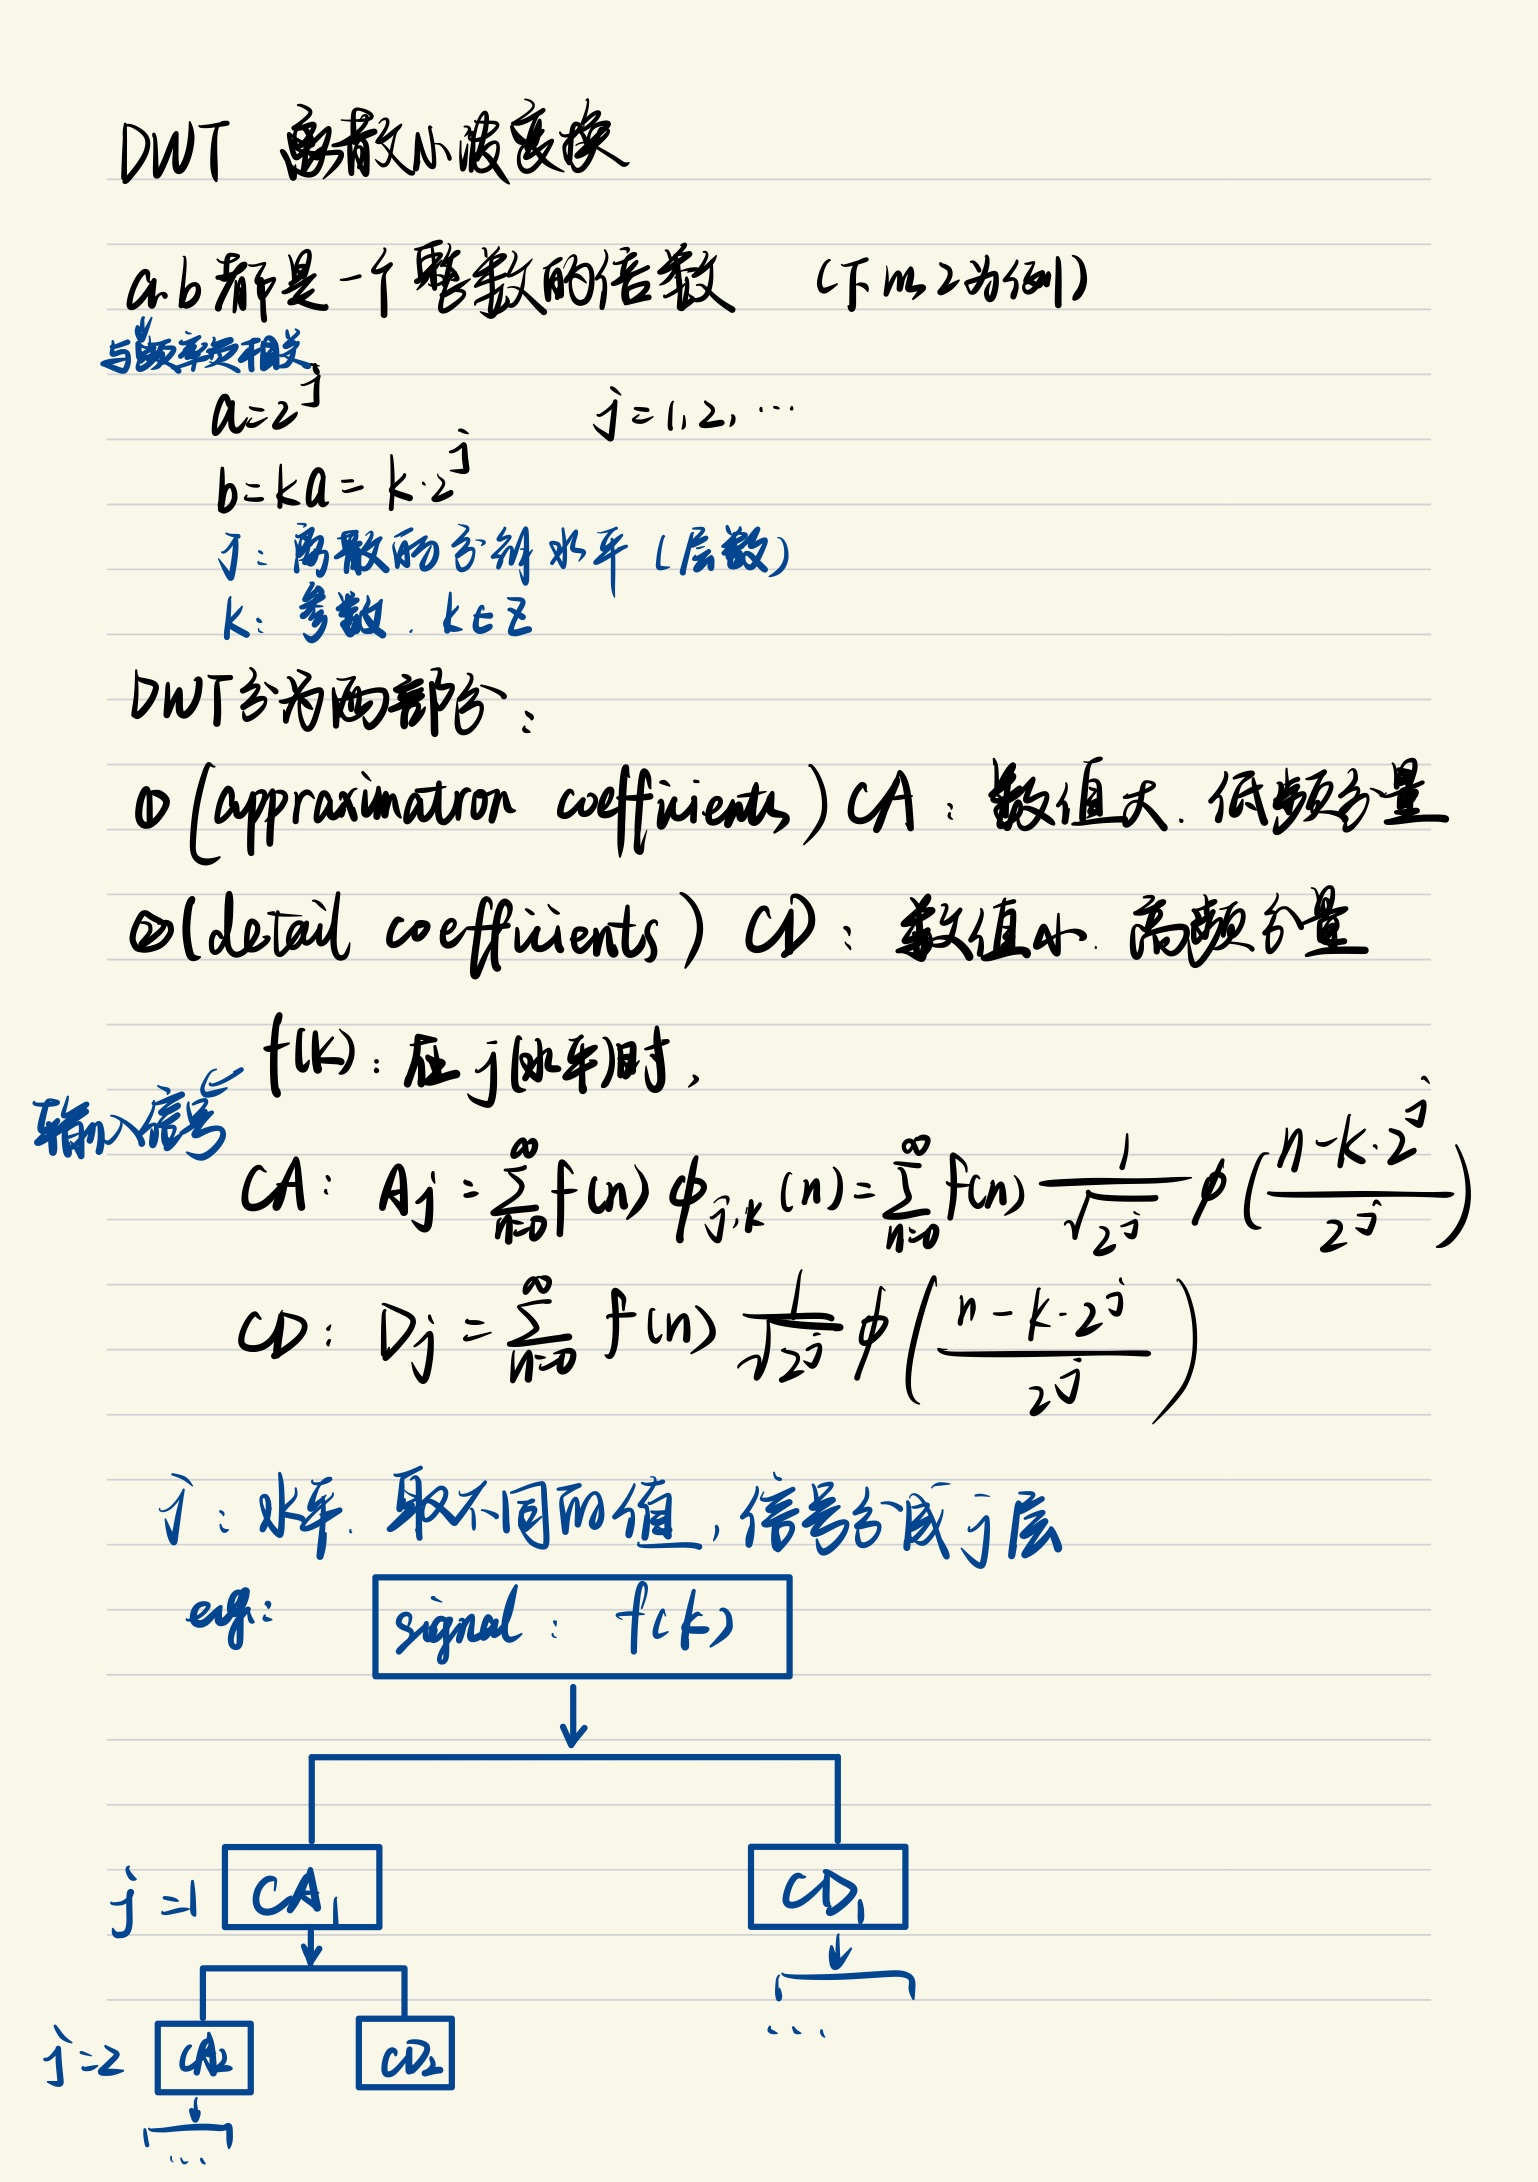 DWT 离散小波变换
a.b都是一个整数的倍数 (下以2为例)
与频率负相关
a=2^j j=1,2,…
b=ka=k·2^j
j: 离散的分辨水平(层数)
k: 参数. k∈Z
DWT分为两部分:
①(approximation coefficients) CA: 数值大. 低频分量
②(detail coefficients) CD: 数值小. 高频分量
f(k): 在j(水平)时,
输入信号
CA: Aj = ∑_{n=0}^{∞} f(n) ϕ_{j,k}(n) = ∑_{n=0}^{∞} f(n) 1/√(2^j) ϕ((n-k·2^j)/2^j)
CD: Dj = ∑_{n=0}^{∞} f(n) 1/√(2^j) ϕ((n-k·2^j)/2^j)
j: 水平. 取不同的值, 信号分成j层
eg:
signal: f(k)
j=1 CA₁ CD₁
...
j=2 CA₂ CD₂
...